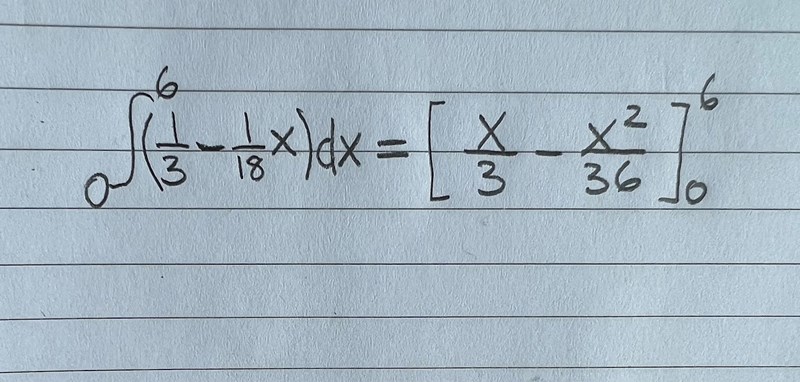 ∫₀⁶ (1/3 − 1/18 x) dx = [ x/3 − x²/36 ]₀⁶